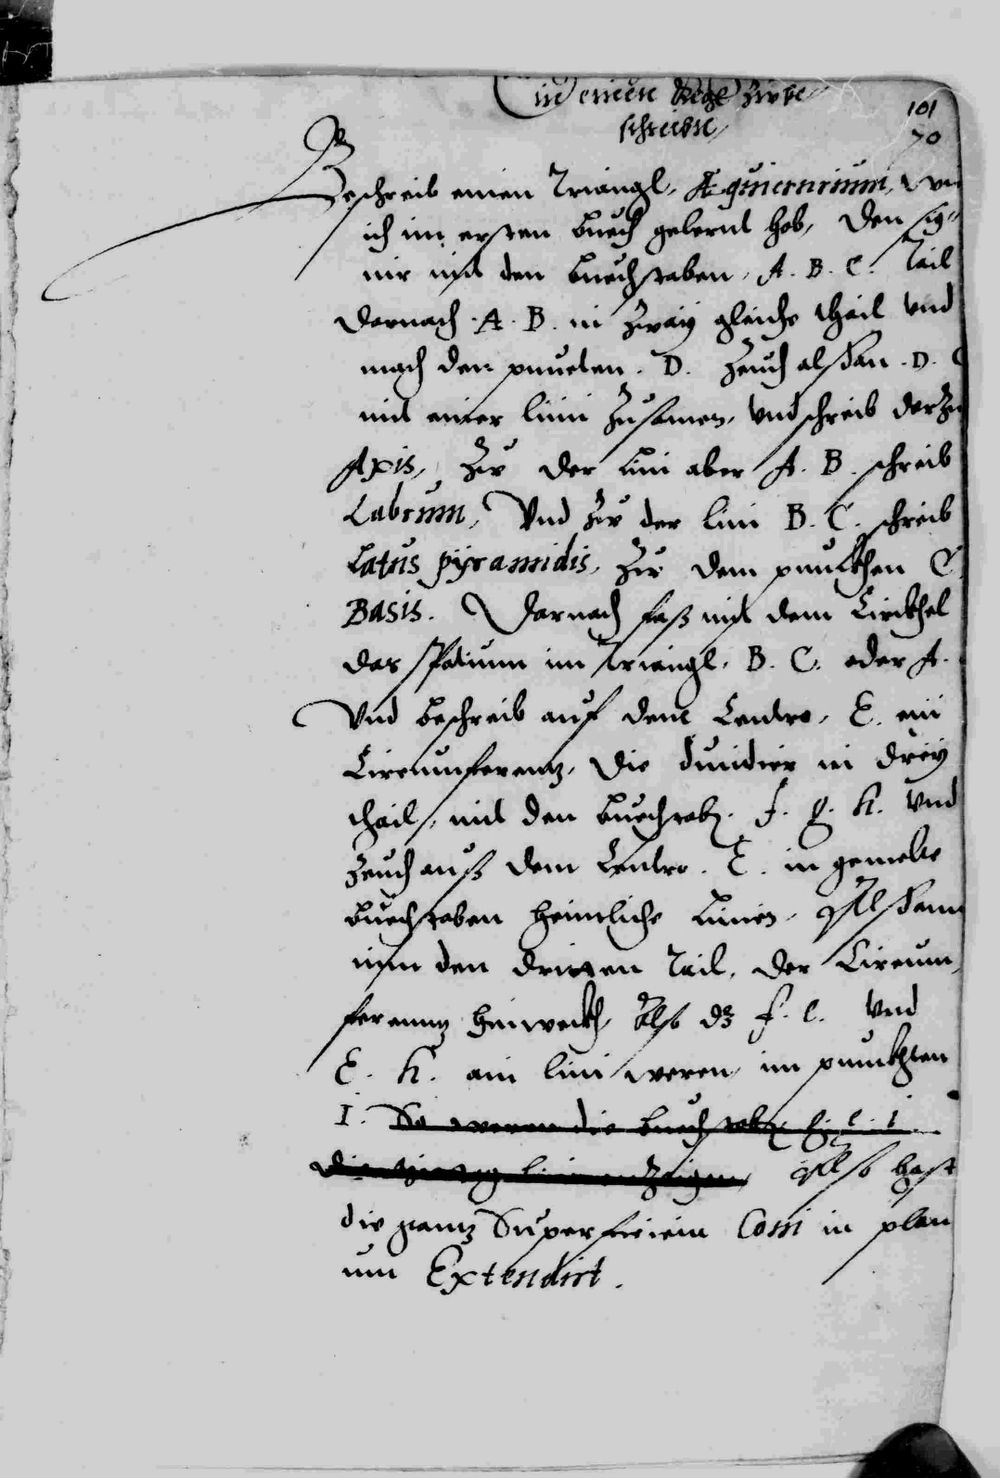 in einen Kegl zube
schreiben
101
70
Beschreib einen Triangl, Æquicrurium, wie
ich im ersten buech gelernt hab, den sig-
nir mit den buechstaben, A. B. C. Tail
darnach A. B. in zway gleiche thail vnd
mach den puncten. D. Zeuch alsdan. D. C
mit einer lini zusamen, vnd schreib darzu
Axis, zu der lini aber A. B. schreib
Labrum, Vnd zu der lini B. C. schreib
Latus pÿramidis, zu dem punckhen C
Basis. Darnach fass mit dem Circkhel
das spatium im triangl, B. C. oder A.
Vnd beschreib auf dem Centro, E. ein
Circumferentz, die diuidier in dreÿ
thail, mit den buechstaben. F. g. K. vnd
zeuch auss dem Centro. E. in gemelte
buechstaben heimliche linien, Alsdann
nim den dritten tail, der Circum-
ferenntz hinweckh, Also dz F. E. vnd
E. K. ain lini weren im punckhten
I. So weren die buechstaben
Also hast
die gantz Superficiem Coni in plan
um Extendirt.